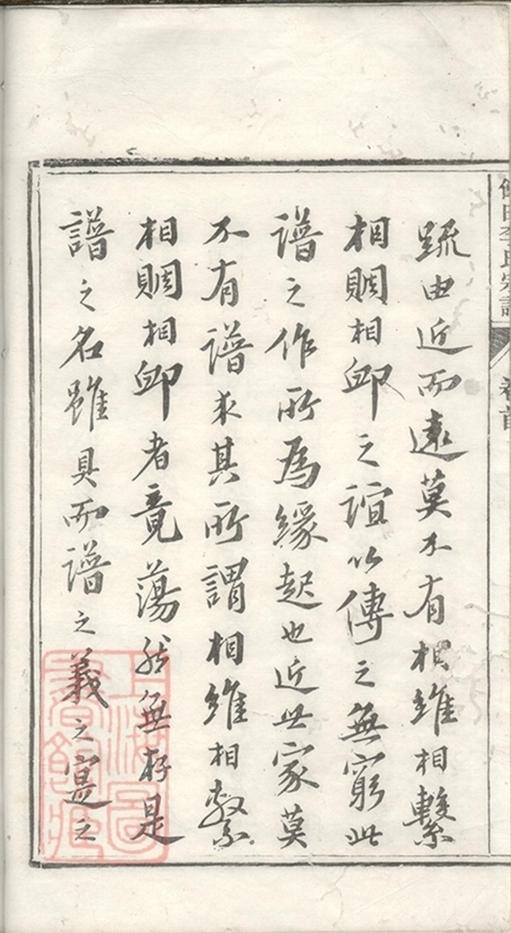 李氏宗譜
卷首
疏由近而遠莫不有相維相繫
相賙相卹之誼以傳之無窮此
譜之作所為緣起也近世家莫
不有譜求其所謂相維相繫
相賙相卹者竟蕩然無存是
譜之名雖具而譜之義之寔之
上海圖書館藏